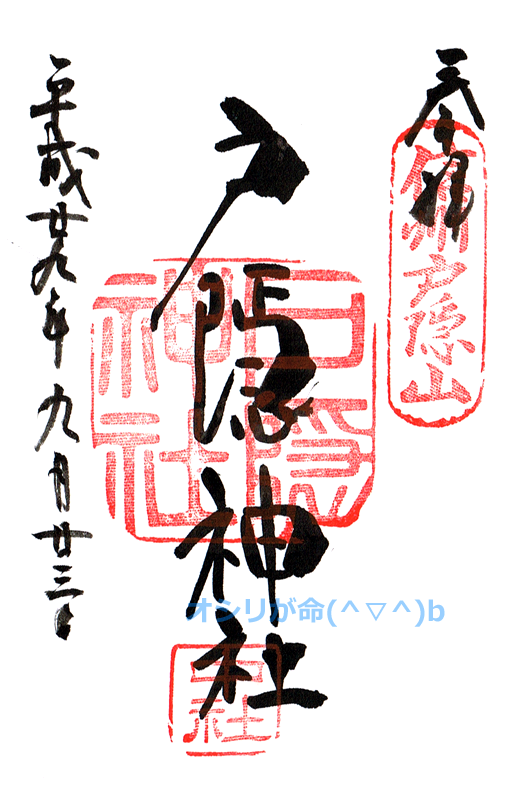 奉拝
信州戸隠山
戸隠神社
戸隠神社
中社
平成廿九年九月廿三日
オシリが命(^▽^)b